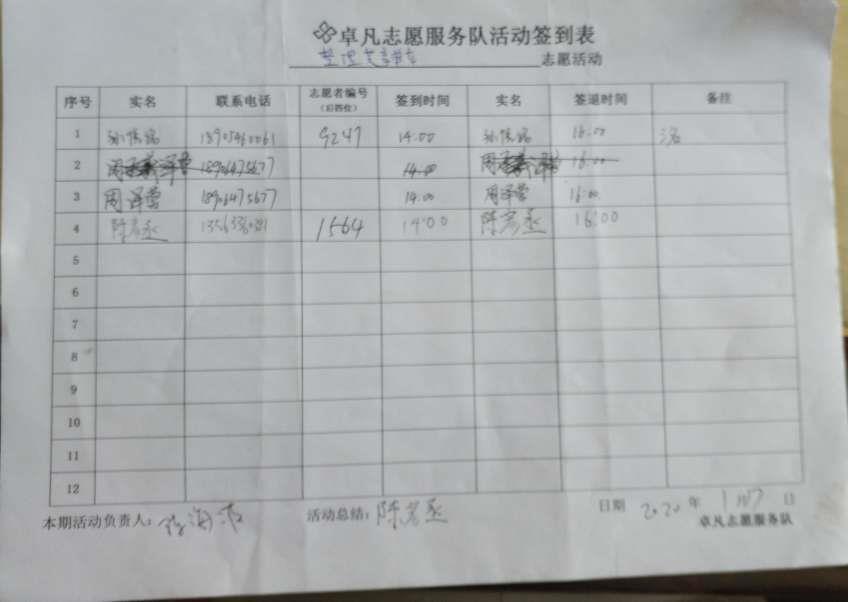 卓凡志愿服务队活动签到表
整理 志愿活动
序号 实名 联系电话 志愿者编号(后四位) 签到时间 实名 签退时间 备注
1 孙 铭 18905460061 9247 14:00 孙 铭 16:00
2 周 18906475677 14:00 周 16:00
3 周泽营 18906475677 14:00 周泽营 16:00
4 陈茗丞 1564 14:00 陈茗丞 16:00
5
6
7
8
9
10
11
12
本期活动负责人: 海 活动总结: 陈茗丞 日期 2020 年 1月17 日
卓凡志愿服务队